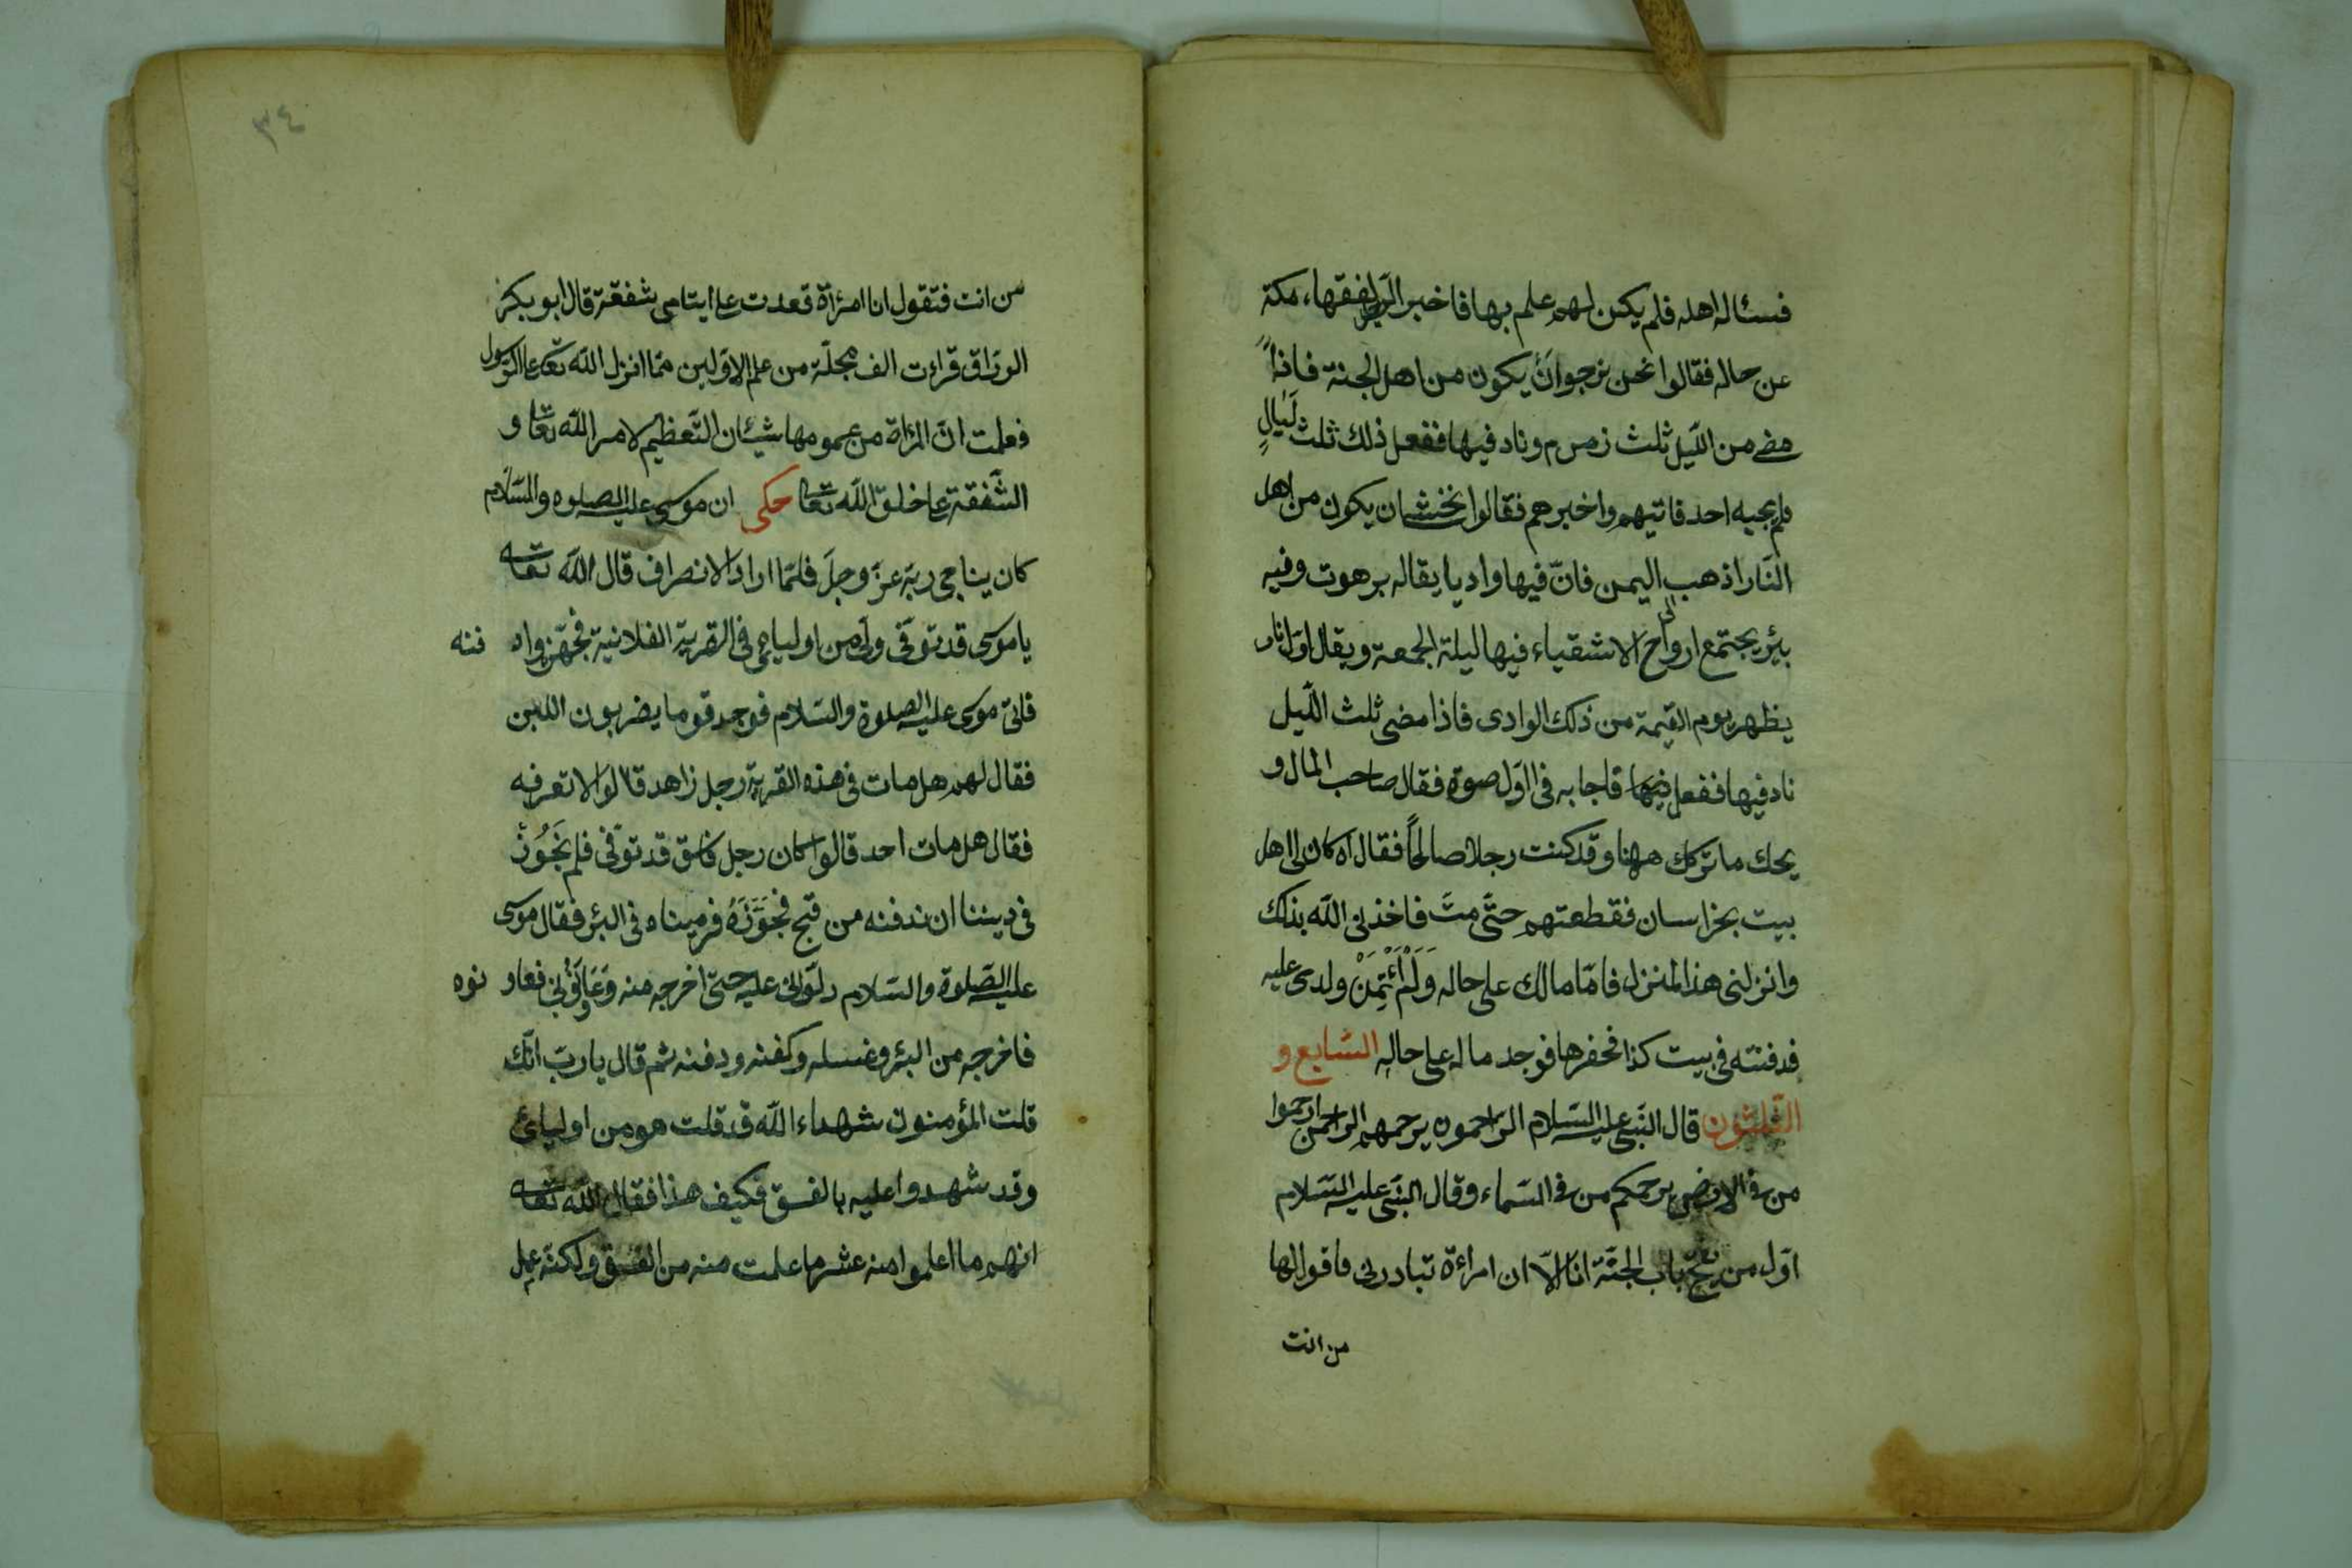 فسئاله اهله فلم يكن لهم علم بها فاخبر الرجل لفقهاء مكة
عن حاله فقالوا نحن نرجوا ان يكون من اهل الجنة فاذا
مضى من الليل ثلث زمزم وناد فيها ففعل ذلك ثلث ليال
فلم يجبه احد فاتيهم واخبرهم فقالوا نخشى ان يكون من اهل
النار اذهب الى اليمن فان فيها واديا يقاله برهوت وفيه
بئر يجتمع ارواح الاشقياء فيها ليلة الجمعة ويقال اول نار
يظهر يوم القيمة من ذلك الوادى فاذا مضى ثلث الليل
ناد فيها ففعل فيها فاجابه فى اول صوة فقال صاحب المال و
يحك ما تركك ههنا وقد كنت رجلا صالحا فقال اه كان لى اهل
بيت بخراسان فقطعتهم حتى مت فاخذنى الله بذلك
وانزلنى هذا المنزل فاما مالك على حاله ولم أئتمن ولدى عليه
فدفنته فى بيت كذا فحفرها فوجد ماله على حاله السابع و
الثلثون قال النبى عليه السلام الراحمون يرحمهم الراحمن ارحموا
من فى الارض يرحمكم من فى السماء وقال النبى عليه السلام
اول من يفتح باب الجنة انا الا ان امراءة تبادرنى فاقول لها
من انت
٣٤
من انت فتقول انا امرئة قعدت على ايتامى شفقة قال ابو بكر
الوراق قراءت الف مجلة من علم الاولين مما انزل الله تعا على الرسول
فعلمت ان المراة من عمومها شيئان التعظيم لامر الله تعا و
الشفقة على خلق الله تعا حكى ان موسى عليه الصلوه والسلام
كان يناجى ربه عز وجل فلما اراد الانصراف قال الله تعا
يا موسى قد توفى ولى من اوليائى فى القرية الفلانية فجهزه واد فنه
فاتى موسى عليه الصلوة والسلام فوجد قوما يضربون اللبن
فقال لهم هل مات فى هذه القرية رجل زاهد قالوا لا تعرفه
فقال هل مات احد قالوا كان رجل فاسق قد توفى فلم نجوز
فى ديننا ان ندفنه من قبح فجوره فرميناه فى البئر فقال موسى
عليه الصلوة والسلام دلونى عليه حتى اخرجه منه وعاونونى فعاو نوه
فاخرجه من البئر وغسله وكفنه ودفنه ثم قال يا رب انك
قلت المؤمنون شهداء الله قد قلت هو من اوليائى
وقد شهدوا عليه بالفسق فكيف هذا فقال الله تعا
انهم ما اعلموا منه عشر ما علمت منه من الفسق ولكنه عمل